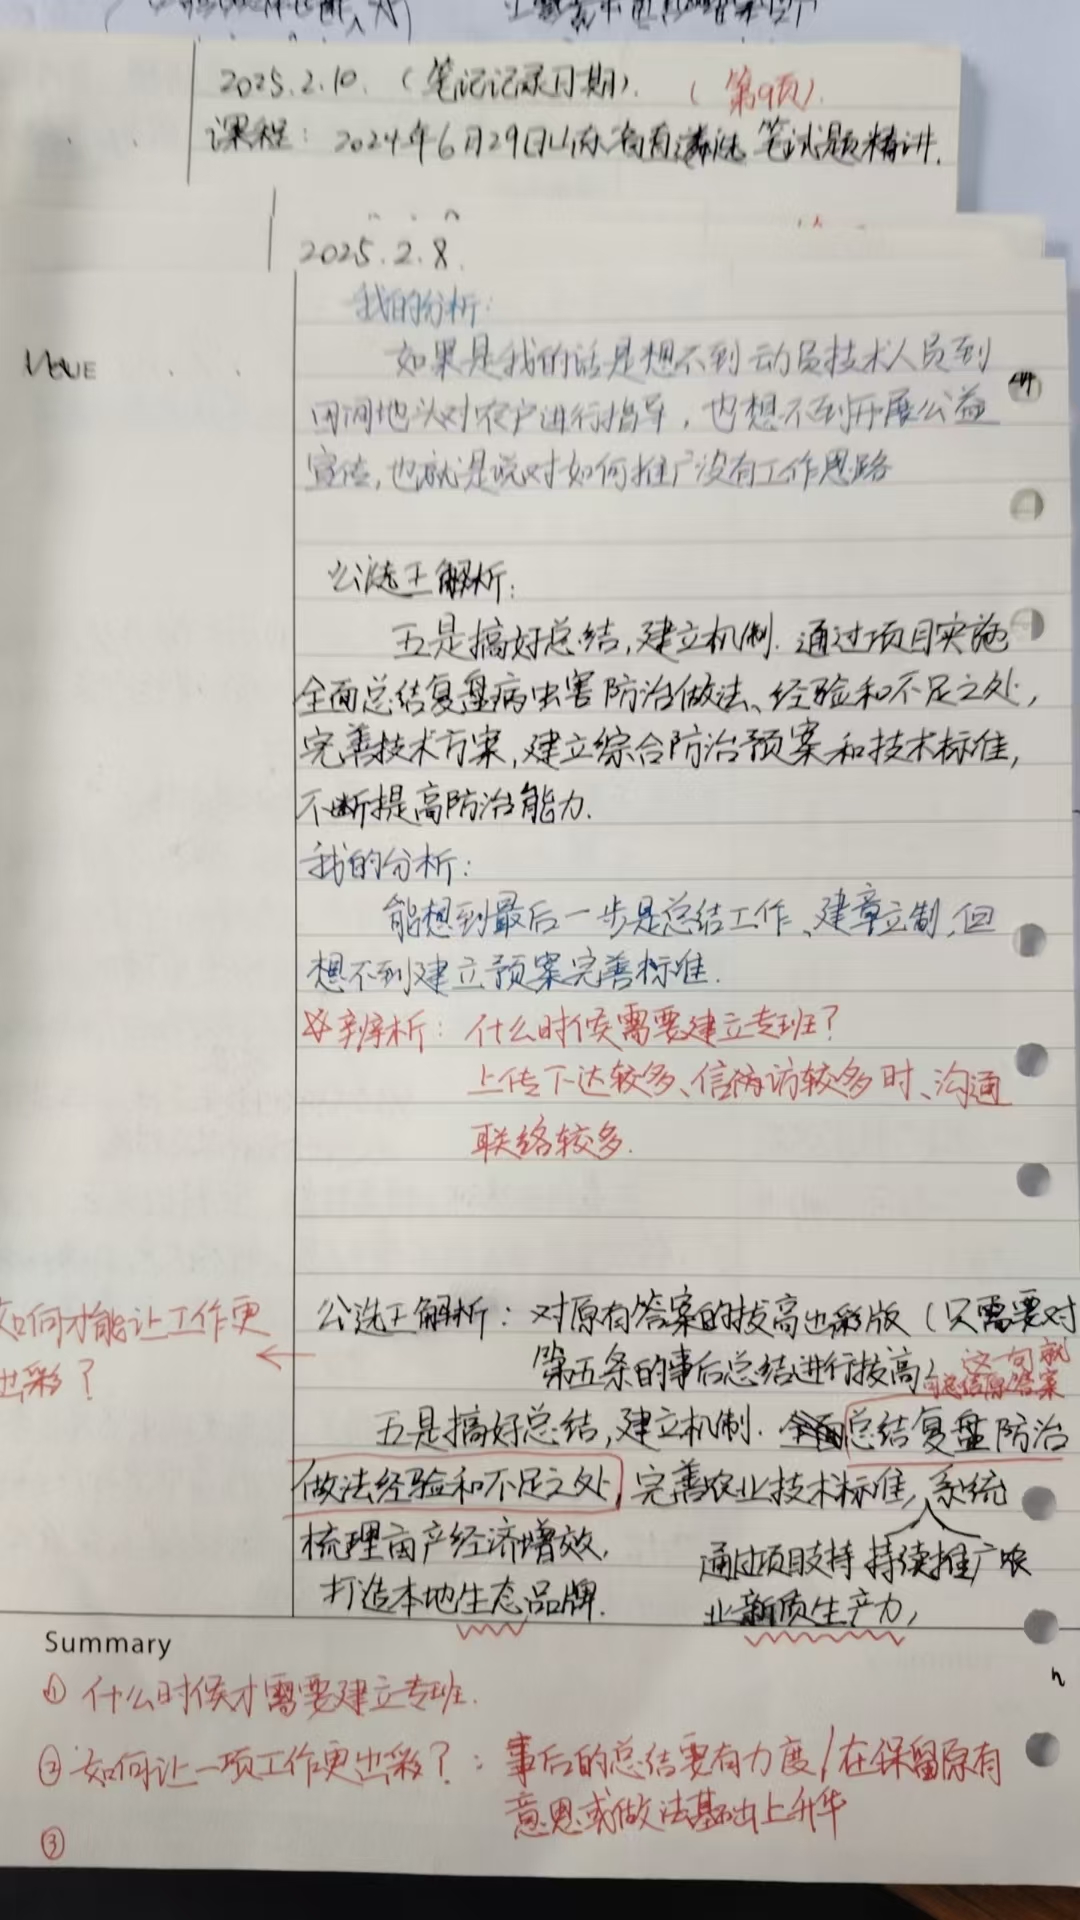 2025.2.10.（笔记记录日期）.（第9页）.
课程：2024年6月29日山东省 笔试题精讲.
2025.2.8.
我的分析：
如果是我的话是想不到动员技术人员到
田间地头对农户进行指导，也想不到开展公益
宣传，也就是说对如何推广没有工作思路
公选王解析：
五是搞好总结，建立机制. 通过项目实施
全面总结复盘病虫害防治做法、经验和不足之处，
完善技术方案，建立综合防治预案和技术标准，
不断提高防治能力.
我的分析：
能想到最后一步是总结工作、建章立制，但
想不到建立预案完善标准.
辨析：什么时候需要建立专班？
上传下达较多、信访较多时、沟通
联络较多.
如何才能让工作更
出彩？
公选王解析：对原有答案的拔高出彩版（只需要对
第五条的事后总结进行拔高）
这句就
总结原答案
五是搞好总结，建立机制. 全面总结复盘防治
做法经验和不足之处，完善农业技术标准，系统
梳理亩产经济增效，
通过项目支持 持续推广农
打造本地生态品牌.
业新质生产力，
Summary
① 什么时候才需要建立专班.
② 如何让一项工作更出彩？：事后的总结要有力度/在保留原有
意思或做法基础上升华
③